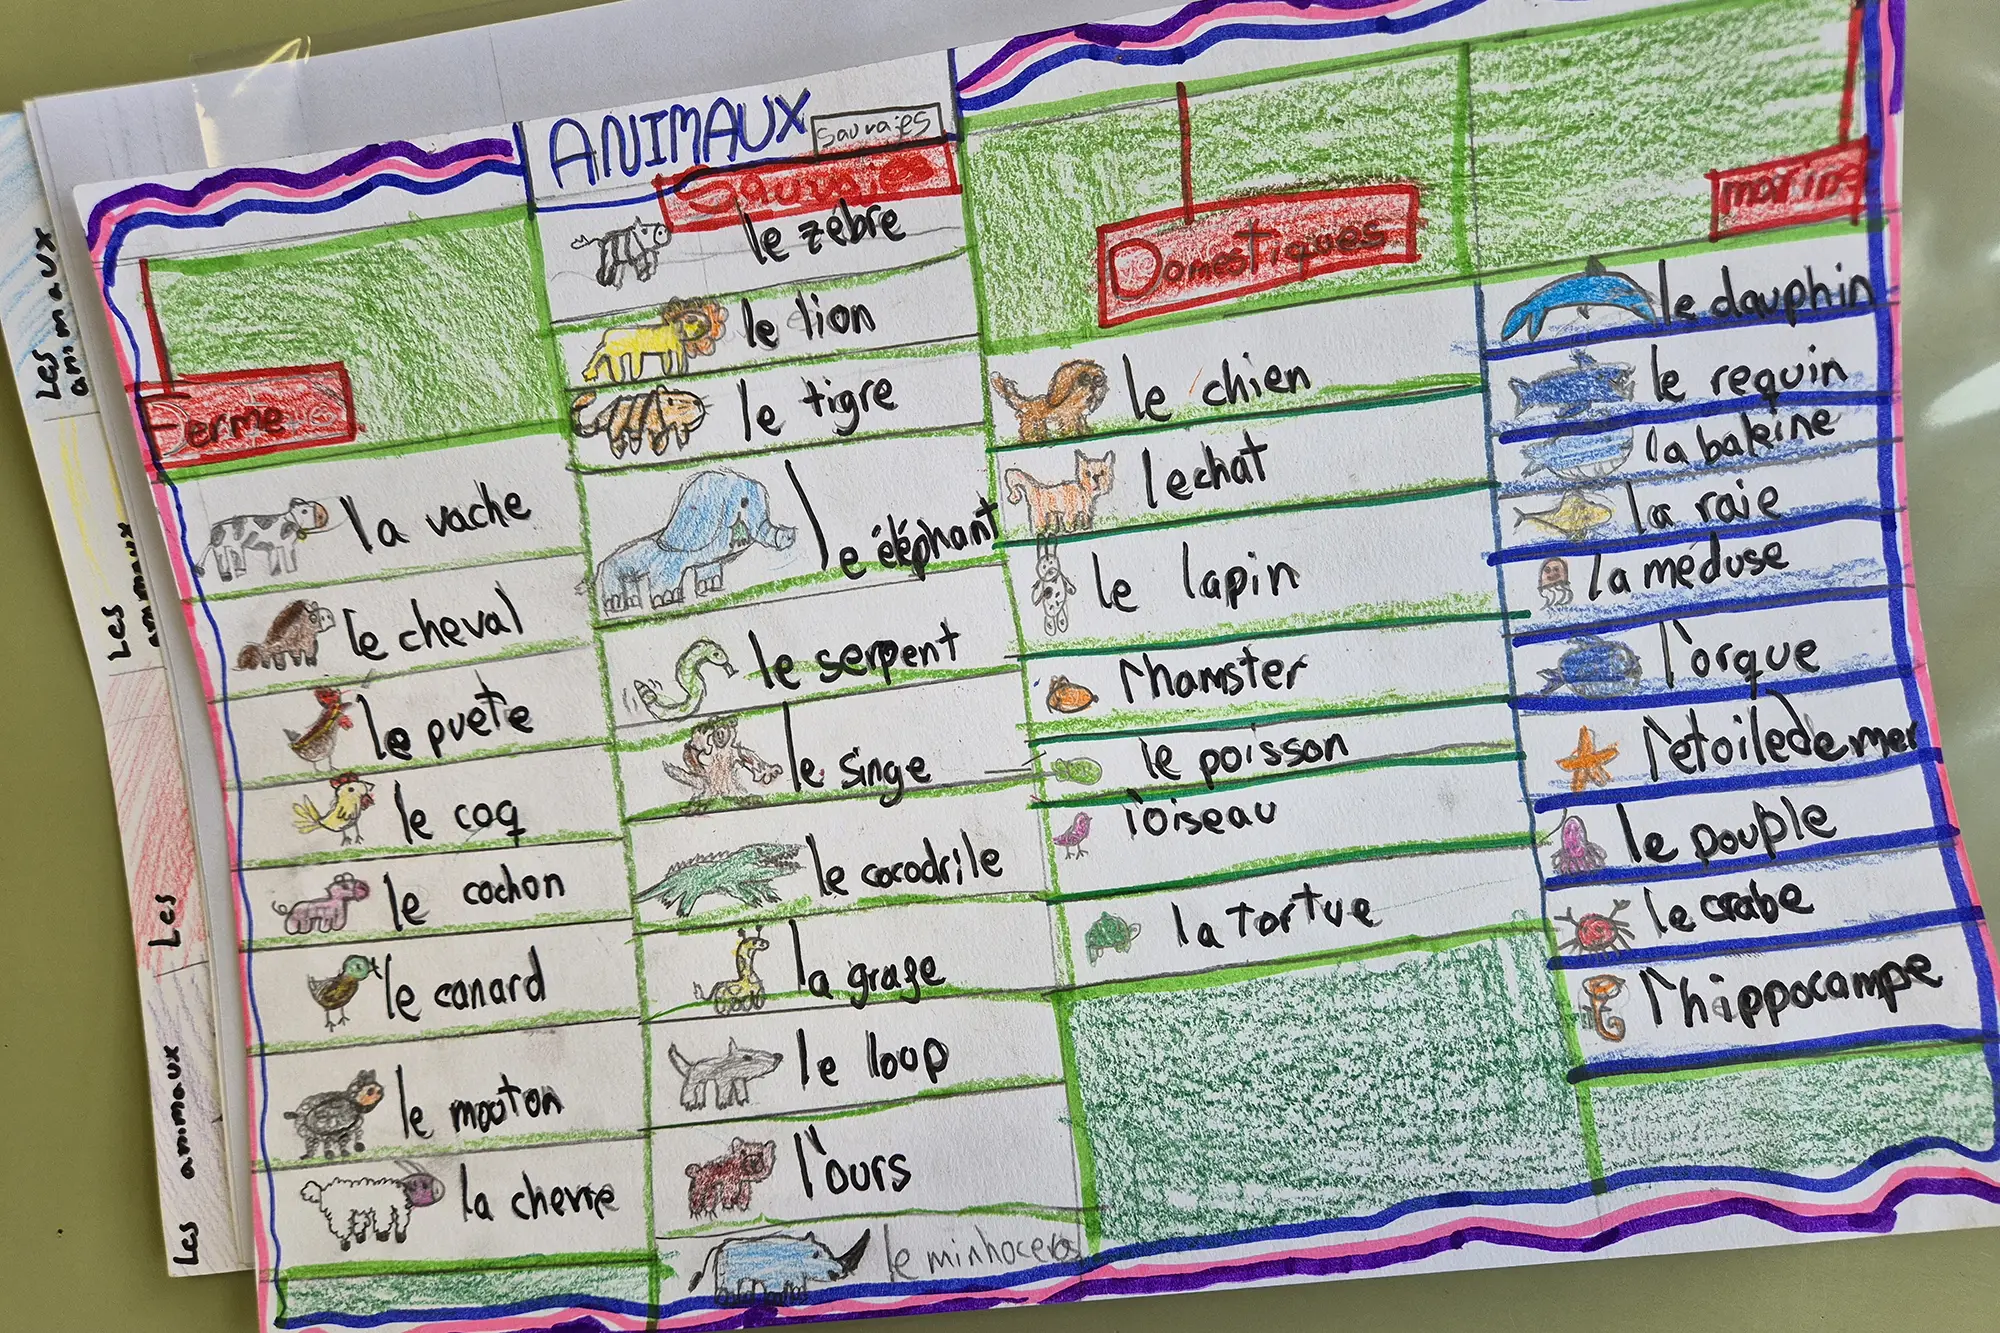 ANIMAUX
sauvajes
Sauvajes
le zébre
le lion
le tigre
le éléphant
le serpent
le singe
le cocodrile
la grafe
le loop
l'ours
le minhoceros
Ferme
la vache
le cheval
le puete
le coq
le cochon
le canard
le mouton
la chevre
Domestiques
le chien
le chat
le lapin
l'hamster
le poisson
l'oiseau
la tortue
marine
le dauphin
le requin
la baleine
la raie
la méduse
l'orque
l'etoile de mer
le pouple
le crabe
l'hippocampe
Les
animaux
Les
animaux
Les
Les animaux